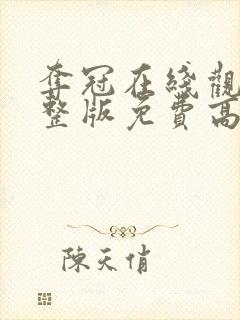 奪冠在綫觀
整版免費高
陳天俏